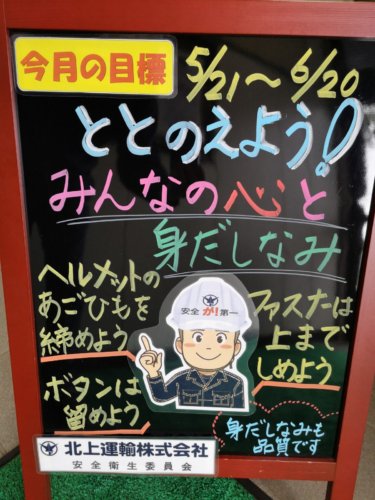 今月の目標
5/21～6/20
ととのえよう!
みんなの心と
身だしなみ
ヘルメットの
あごひもを
締めよう
ファスナは
上まで
しめよう
安全が!第一
ボタンは
留めよう
身だしなみも
品質です
北上運輸株式会社
安全衛生委員会